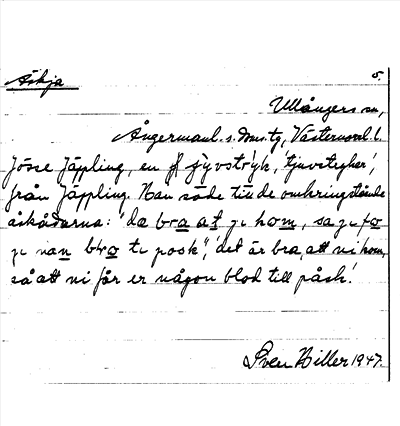 Åskja
5.
Ullångers sn,
Ångermanl. s. dms. tg, Västernorrl. l.
Jösse Jäppling, en jyvstryk, 'tjuvstryker',
från Jäppling. Han sade till de omkringstående
åskådarna: "dä bra at je kom, sa je fo
je nan blo te posk", 'det är bra, att ni kom,
så att ni får er någon blod till påsk'.
Sven Hiller 1947.